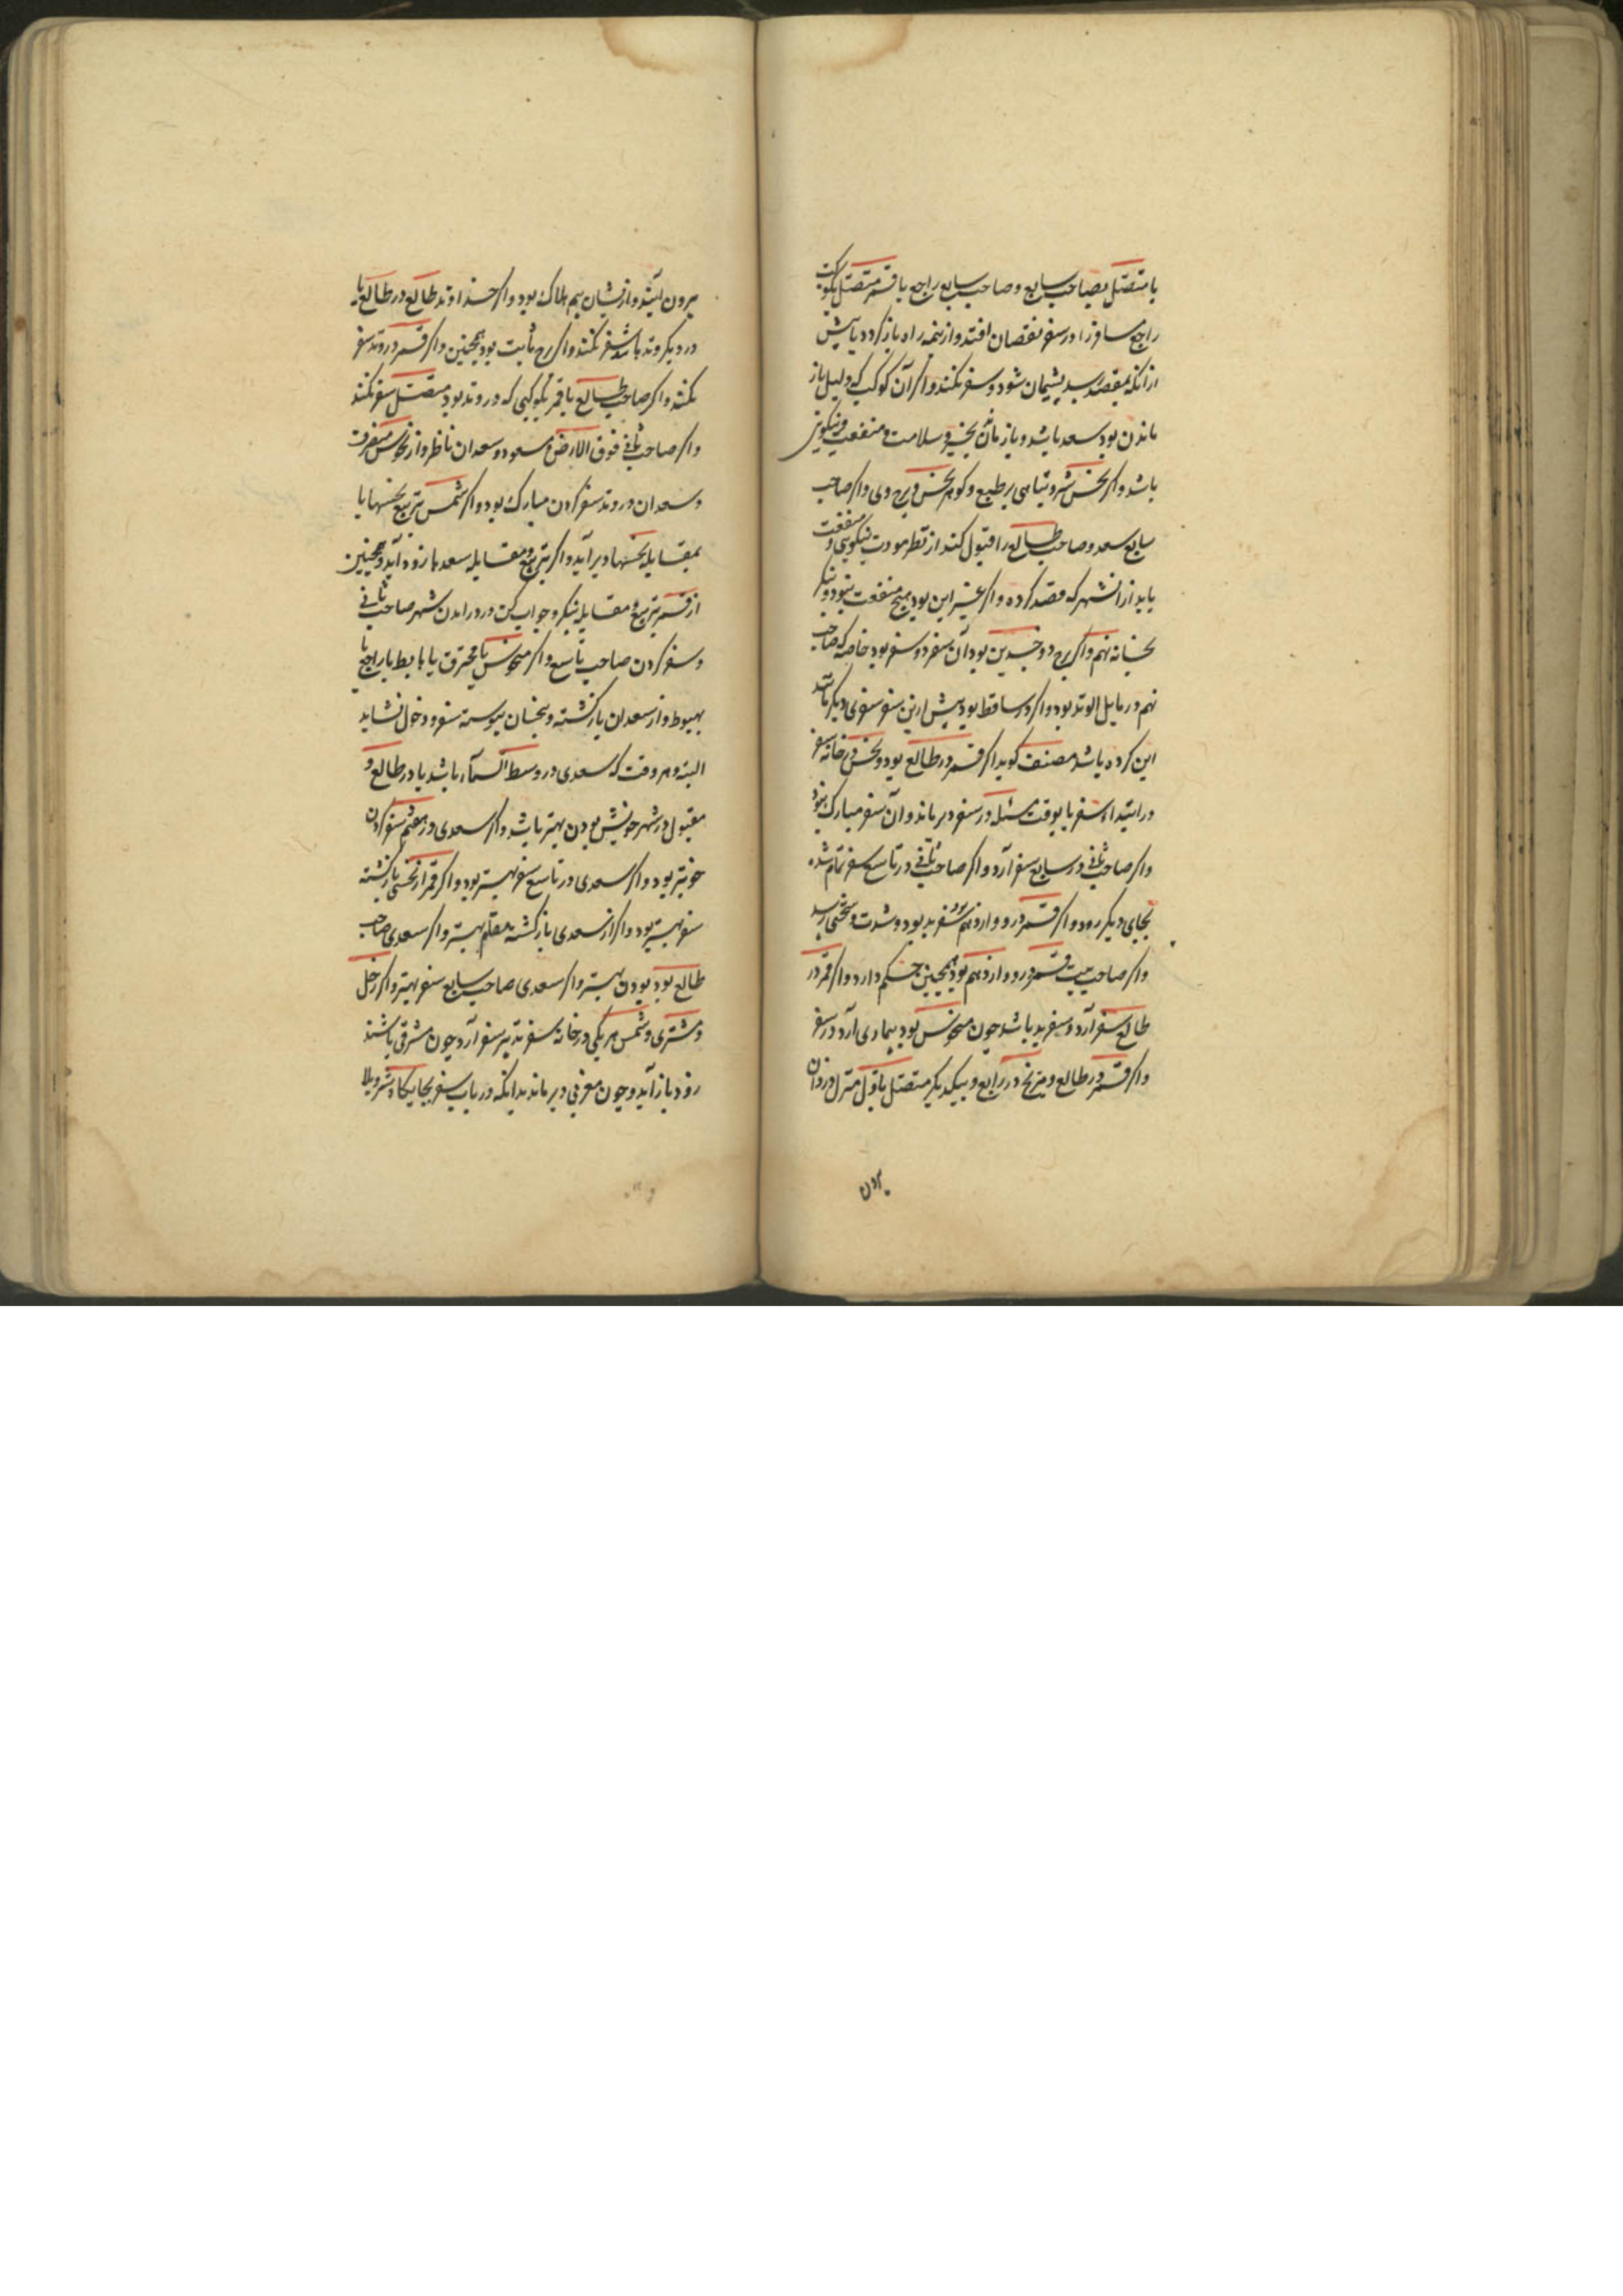 یا متصل بصاحب سابع و صاحب سابع راجع یا قمر متصل بکوکب
راجع مسافر را در سفر نقصان افتد و از نیمه راه باز کردد یا پیش
از انکه بمقصد رسد پشیمان شود و سفر نکند و اکر آن کوکب که دلیل باز
ماندن بود سعد باشد و باز ماندن بخیر و سلامت و منفعت و نیکویی
باشد و اکر نحس شر و تباهی بر طبع و کوهر نحس و برج وی و اکر صاحب
سابع سعد و صاحب طالع را قبول کند از نظر مودت نیکویی و منفعت
یابد از ان شهر که قصد کرده و اکر غیر این بود هیچ منفعت نبود و بنکر
بخانه نهم و اکر برج ذو جسدین بود آن سفر دو سفر بود خاصه که صاحب
نهم در مایل الوتد بود و اکر در ساقط بود پیش ازین سفر سفری دیکر باشد
این کرده باشد مصنف کوید اکر قمر در طالع بود و نحس در خانه سفر
در ابتدا سفر یا بوقت مسئله در سفر دیر ماند و آن سفر مبارک نبود
و اکر صاحب ثانی در سابع سفر آرد و اکر صاحب ثانی در تاسع سفر تمام شده
بجای دیکر رود و اکر قمر در دوازدهم بود سفر بد بود و شدت و سختی رسد
و اکر صاحب بیت قمر در دوازدهم بود همچنین حکم دارد و اکر قمر در
طالع سفر آرد و سفر بد باشد چون منحوس بود بیماری آرد در سفر
و اکر قمر در طالع و مریخ در رابع و بیکدیکر متصل باول منزل دزدان
برون
برون آیند و از یشان بیم هلاک بود و اکر خداوند طالع در طالع یا
در دیکر وتد باشد سفر نکند و اکر برج ثابت بود همچنین و اکر قمر در وتد سفر
نکند و اکر صاحب طالع یا قمر بکوکبی که در وتد بود متصل سفر نکند
و اکر صاحب ثانی فوق الارض و مسعود و سعدان ناظر و از نحوس منصرف
و سعدان در وتد سفر کردن مبارک بود و اکر شمس بتربیع نحسها یا
بمقابله نحسها دیر آید و اکر بتربیع و مقابله سعدها زود آید و همچنین
از قمر بتربیع و مقابله بنکر و جواب کن در درامدن شهر صاحب ثانی
و سفر کردن صاحب تاسع و اکر منحوس یا محترق یا هابط یا راجع یا
بهبوط و از سعدان باز کشته و بنحسان پیوسته سفر و دخول نشاید
البته و هر وقت که سعدی در وسط السماء باشد یا در طالع و
مقبول در شهر خویش بودن بهتر باشد و اکر سعدی در هفتم سفر کردن
خوبتر بود و اکر سعدی در تاسع سفر بهتر بود و اکر قمر از نحسی باز کشته
سفر بهتر بود و اکر از سعدی باز کشته مقام بهتر و اکر سعدی صاحب
طالع بود بودن بهتر و اکر سعدی صاحب سابع سفر بهتر و اکر زحل
و مشتری و شمس هر یکی در خانه سفر تدبیر سفر آرد چون مشرقی باشند
زود باز آید و چون مغربی دیر ماند بدانکه در باب سفر بجایکاه